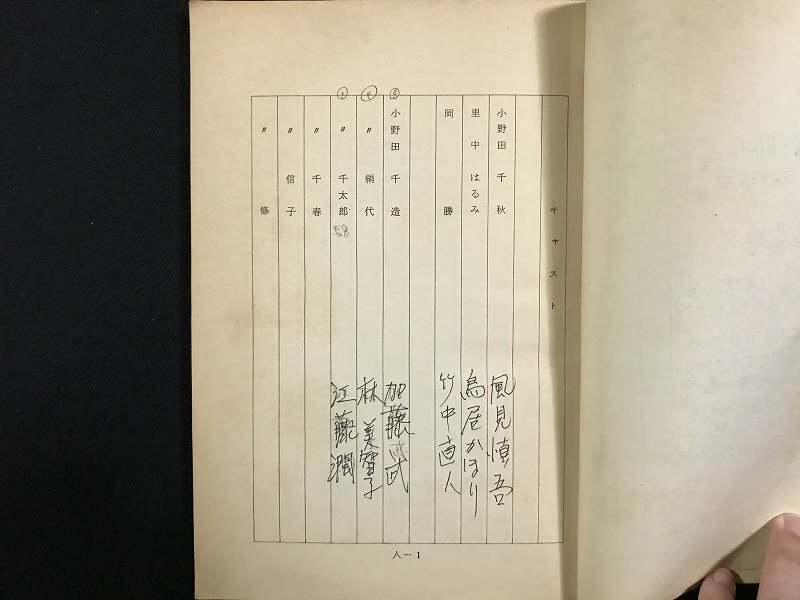 キャスト
小野田 千秋 風見慎吾
里中 はるみ 鳥居かほり
岡 勝 竹中直人
小野田 千造 加藤武
〃 絹代 林美智子
〃 千太郎 江藤潤
〃 千春
〃 信子
〃 修
人-1